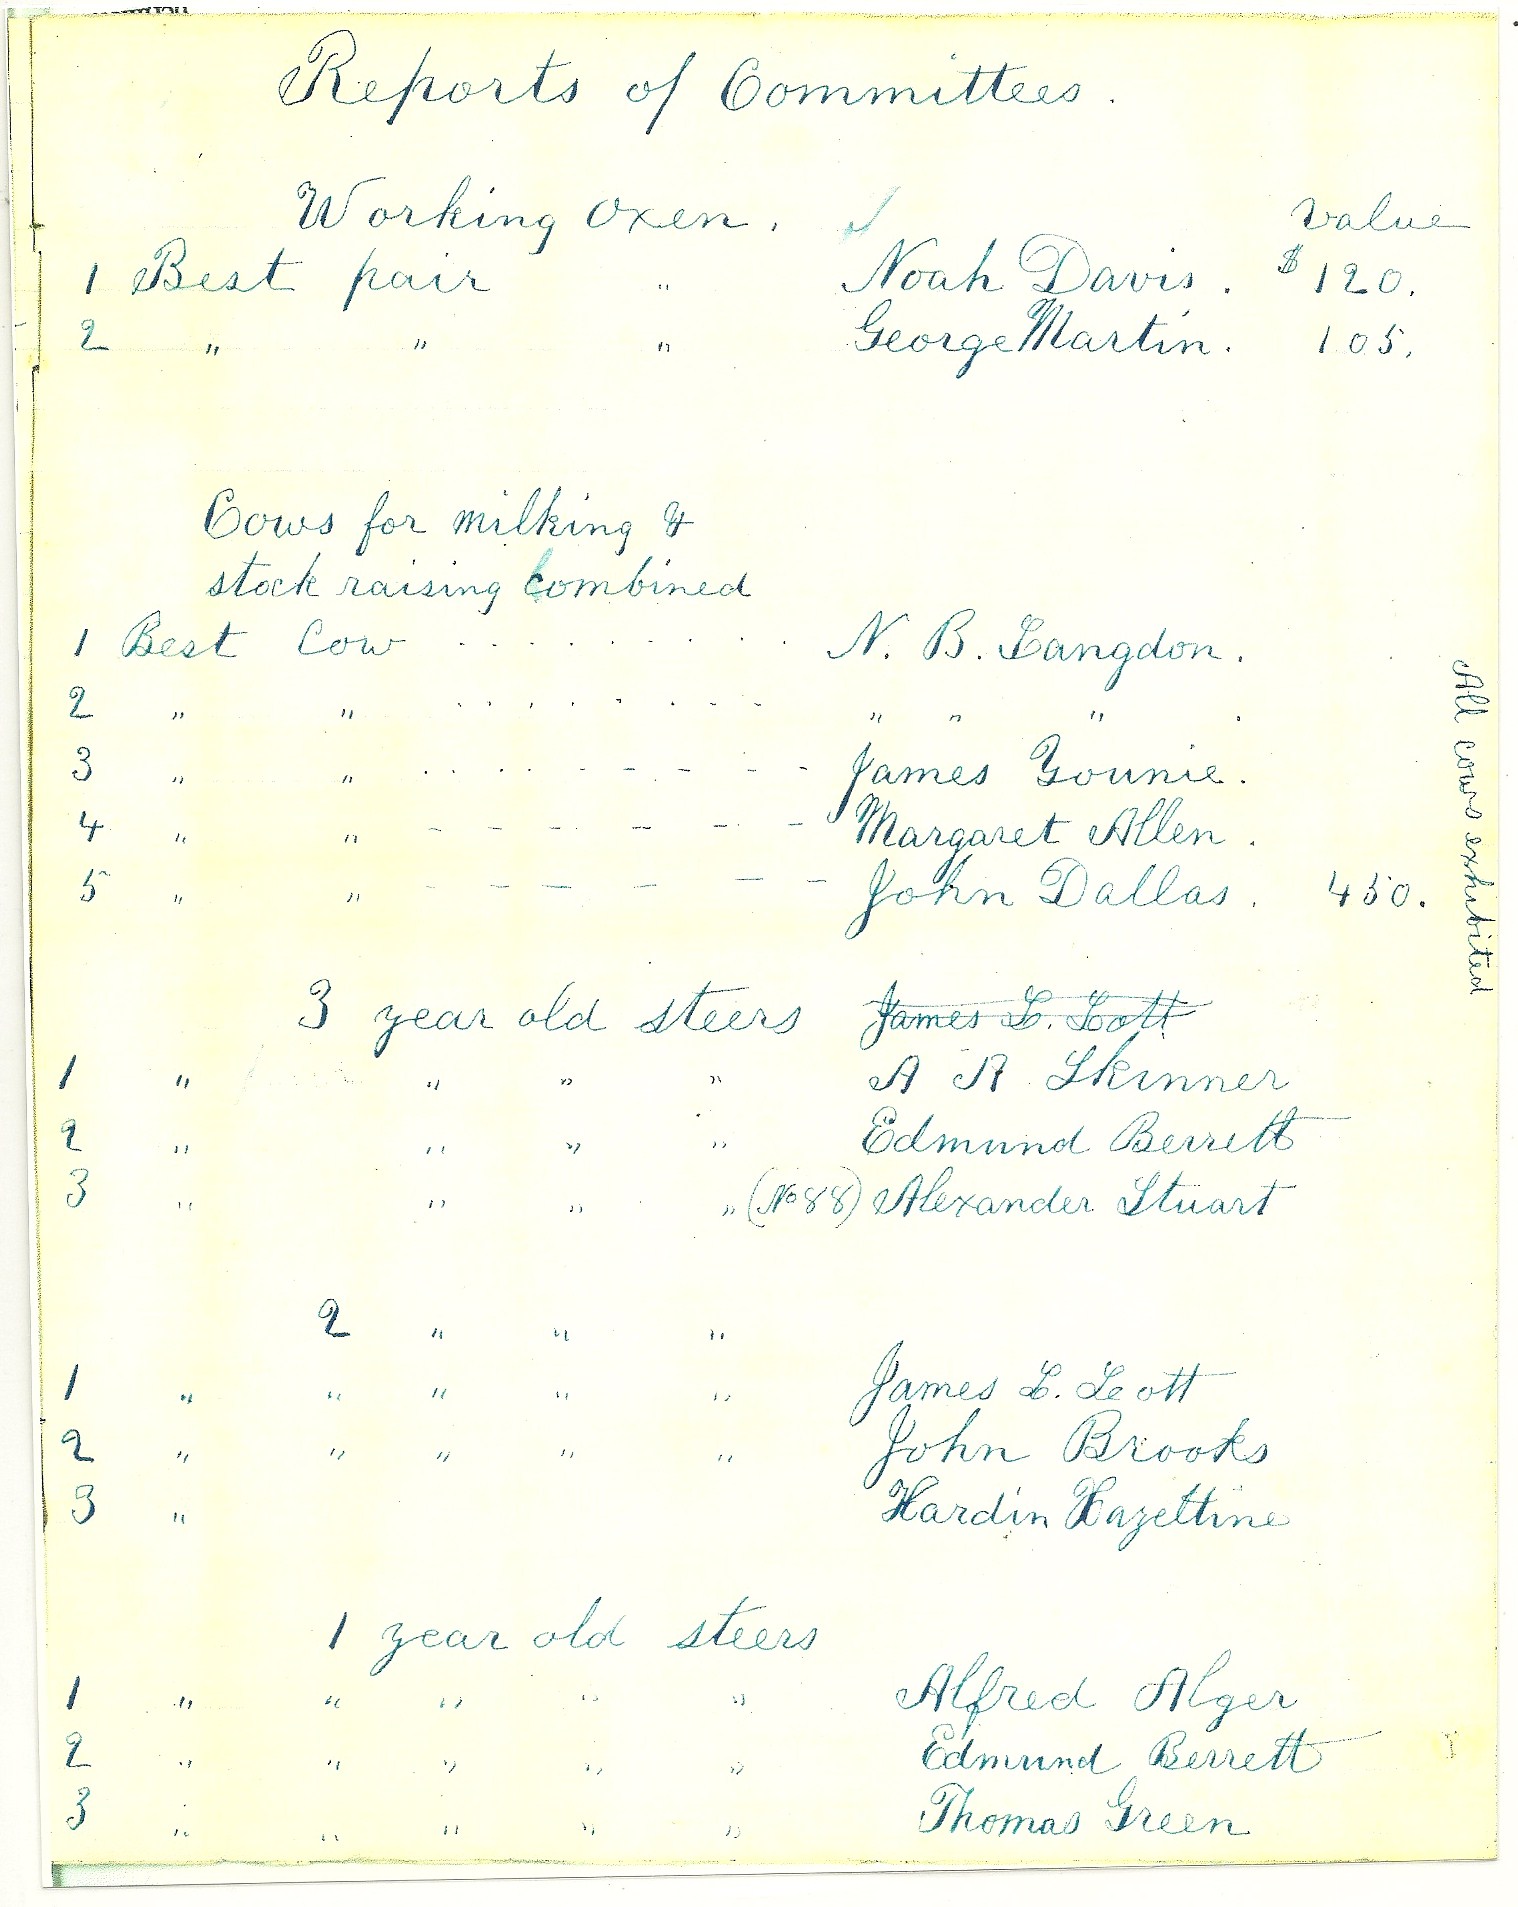 Reports of Committees.
Working Oxen. value
1 Best pair " Noah Davis. $120.
2 " " " George Martin. 105.
Cows for milking &
stock raising combined
1 Best Cow . . . . . . . . . N. B. Langdon.
2 " " . . . . . . . - - - " " " .
3 " " . . . . . - - - - James Younie.
4 " " - - - - - - Margaret Allen.
5 " " - - - - - - John Dallas. 450.
All cows exhibited
3 year old steers James L. Lott
1 " " " " A R Skinner
2 " " " " Edmund Berrett
3 " " " " (No 88) Alexander Stuart
2 " " "
1 " " " " " James L. Lott
2 " " " " " John Brooks
3 " Hardin Hazeltine
1 year old steers
1 " " " " " Alfred Alger
2 " " " " " Edmund Berrett
3 " " " " " Thomas Green